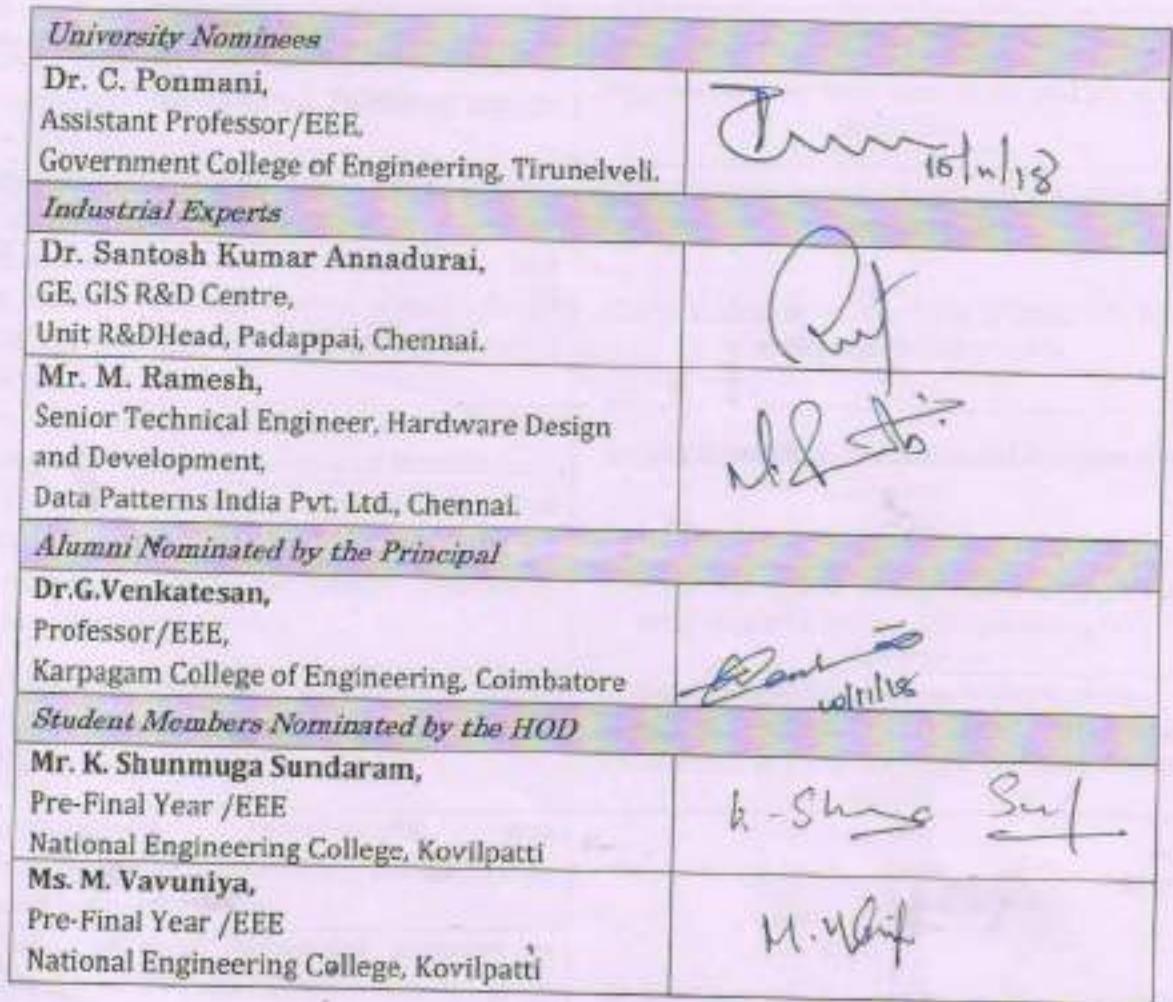 University Nominees
Dr. C. Ponmani,
Assistant Professor/EEE,
Government College of Engineering, Tirunelveli.
Industrial Experts
Dr. Santosh Kumar Annadurai,
GE, GIS R&D Centre,
Unit R&DHead, Padappai, Chennai.
Mr. M. Ramesh,
Senior Technical Engineer, Hardware Design
and Development,
Data Patterns India Pvt. Ltd., Chennai.
Alumni Nominated by the Principal
Dr.G.Venkatesan,
Professor/EEE,
Karpagam College of Engineering, Coimbatore
Student Members Nominated by the HOD
Mr. K. Shunmuga Sundaram,
Pre-Final Year /EEE
National Engineering College, Kovilpatti
Ms. M. Vavuniya,
Pre-Final Year /EEE
National Engineering College, Kovilpatti